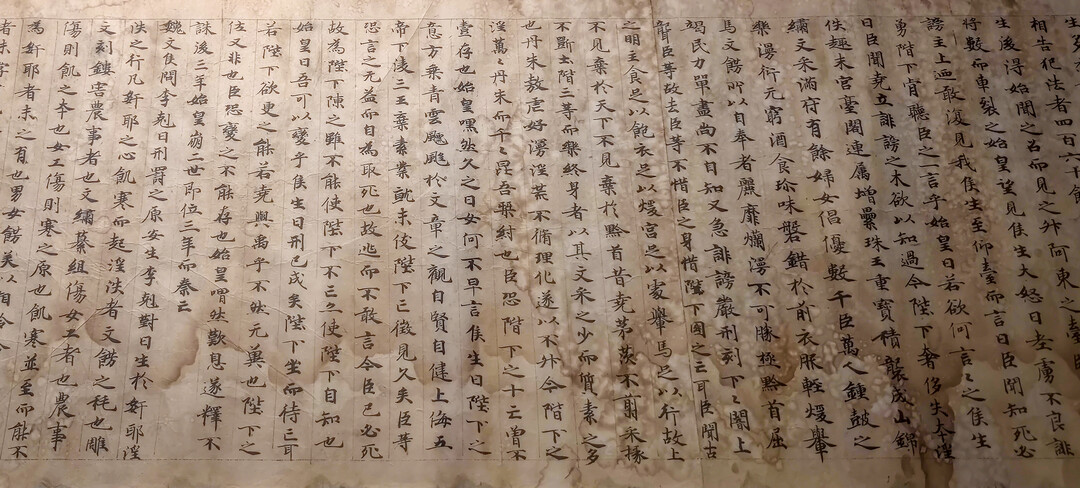 相告犯法者四百六十餘
生後得始聞之召而見之升阿東之臺
將數而車裂之始皇望見侯生大怒曰老虜不良誹
謗主上迺敢復見我侯生至仰臺而言曰臣聞知死必
勇陛下肯聽臣之一言乎始皇曰若欲何言言之侯生
曰臣聞堯立誹謗之木欲以知過今陛下奢侈失本淫
佚趣末宮臺閣連屬增累珠玉重寶積襲成山錦
繡文采滿府有餘婦女倡優數千臣萬人鍾鼓之
樂漫衍无窮酒食珍味盤錯於前衣服輕煖轝
馬文飾所以自奉者麗靡爛漫不可勝極黔首屈
竭民力單盡尚不自知又急誹謗嚴刑刻下下闇上
聾臣等故去臣等不惜臣之身惜陛下國之亡耳臣聞古
之明主食足以飽衣足以煖宮足以處轝馬足以行故上
不見棄於天下不見棄於黔首昔堯茅茨不翦采椽
不斷土階三等而樂終身者以其文采之少而質素之多
也丹朱敖虐好漫淫荒不脩理化遂以不升今陛下之
淫萬々丹朱而千々昆吾桀紂也臣恐陛下之十亡曾不
壹存也始皇嘿然久之曰女何不早言侯生曰陛下之
意方乘青雲飄颻於文章之觀自賢自健上侮五
帝下陵三王棄素樸就末伎陛下亡徵見久矣臣等
恐言之无益而自為取死也故逃而不敢言今臣已必死
故為陛下陳之雖不能使陛下不亡亦使陛下自知也
始皇曰吾可以變乎侯生曰刑已成矣陛下坐而待亡耳
若陛下欲更之能若堯與禹乎不然无冀也陛下之
佐又非也臣恐變之不能存也始皇喟然歎息遂釋不
誅後三年始皇崩二世即位三年而秦亡
魏文侯問李剋曰刑罰之原安生李剋對曰生於姧耶淫
佚之行凡姧耶之心飢寒而起淫法者文飾之秏也雕
文刻鏤害農事者也文繡纂組傷女工者也農事
傷則飢之本也女工傷則寒之原也飢寒並至而能不
為姧耶者未之有也男女飾美以相